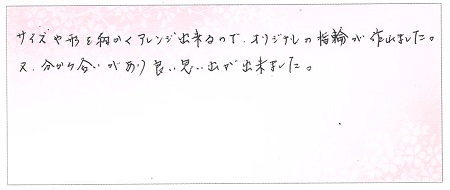 サイズや形を細かくアレンジ出来るので、オリジナルの指輪が作れました。
又、分かち合いがあり良い思い出が出来ました。